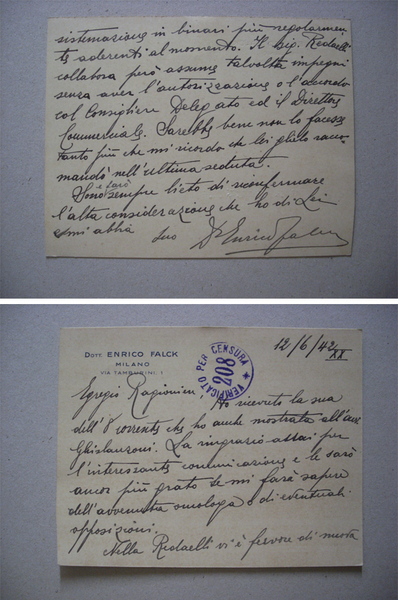 sistemazione in binari più regolarmen
te aderenti al momento. Il Sig. Redaelli
collabora però assume talvolta impegni
senza aver l'autorizzazione o l'accordo
col Consigliere Delegato ed il Direttore
Commerciale. Sarebbe bene non lo facesse
tanto più che mi ricordo che lei glielo racco-
mandò nell'ultima seduta.
Sono e sarò sempre lieto di riconfermare
l'alta considerazione che ho di Lei
e mi abbia suo Dr Enrico Falck
DOTT. ENRICO FALCK
MILANO
VIA TAMBURINI, 1
VERIFICATO PER CENSURA
208
12/6/42 XX
Egregio Ragioniere, Ho ricevuto la sua
dell'8 corrente che ho anche mostrata all'avv.
Ghislanzoni. La ringrazio assai per
l'interessante comunicazione e le sarò
ancor più grato se mi farà sapere
dell'avvenuta omologa o di eventuali
opposizioni.
Nella Redaelli vi è fervore di nuova